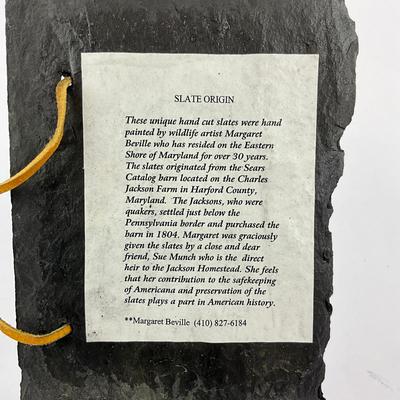 SLATE ORIGIN
These unique hand cut slates were hand
painted by wildlife artist Margaret
Beville who has resided on the Eastern
Shore of Maryland for over 30 years.
The slates originated from the Sears
Catalog barn located on the Charles
Jackson Farm in Harford County,
Maryland. The Jacksons, who were
quakers, settled just below the
Pennsylvania border and purchased the
barn in 1804. Margaret was graciously
given the slates by a close and dear
friend, Sue Munch who is the direct
heir to the Jackson Homestead. She feels
that her contribution to the safekeeping
of Americana and preservation of the
slates plays a part in American history.
**Margaret Beville (410) 827-6184